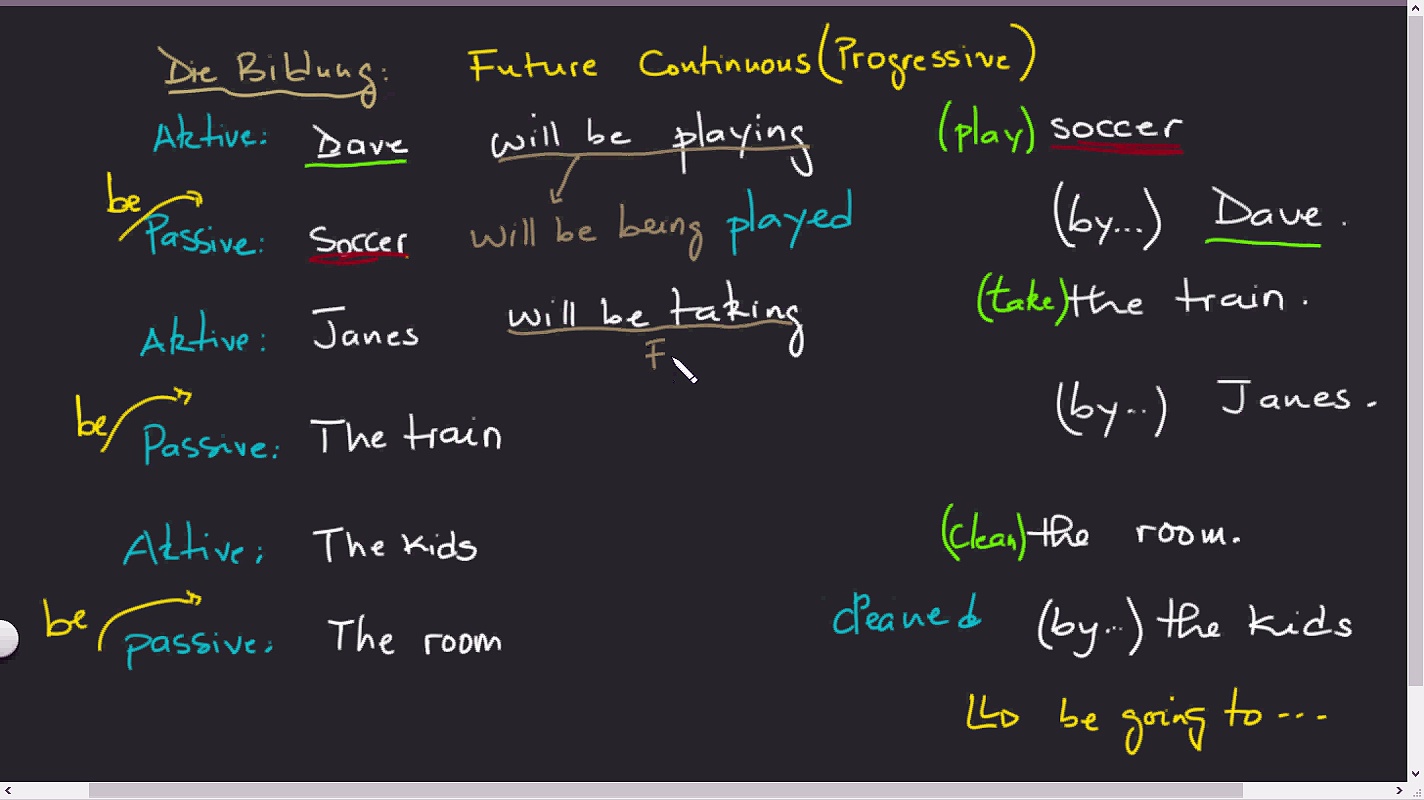 Die Bildung: Future Continuous (Progressive)
Aktive: Dave will be playing (play) soccer
be
Passive: Soccer will be being played (by...) Dave.
Aktive: Janes will be taking (take) the train.
F
be
Passive: The train (by...) Janes.
Aktive: The kids (clean) the room.
be
passive: The room cleaned (by...) the kids
be going to ...